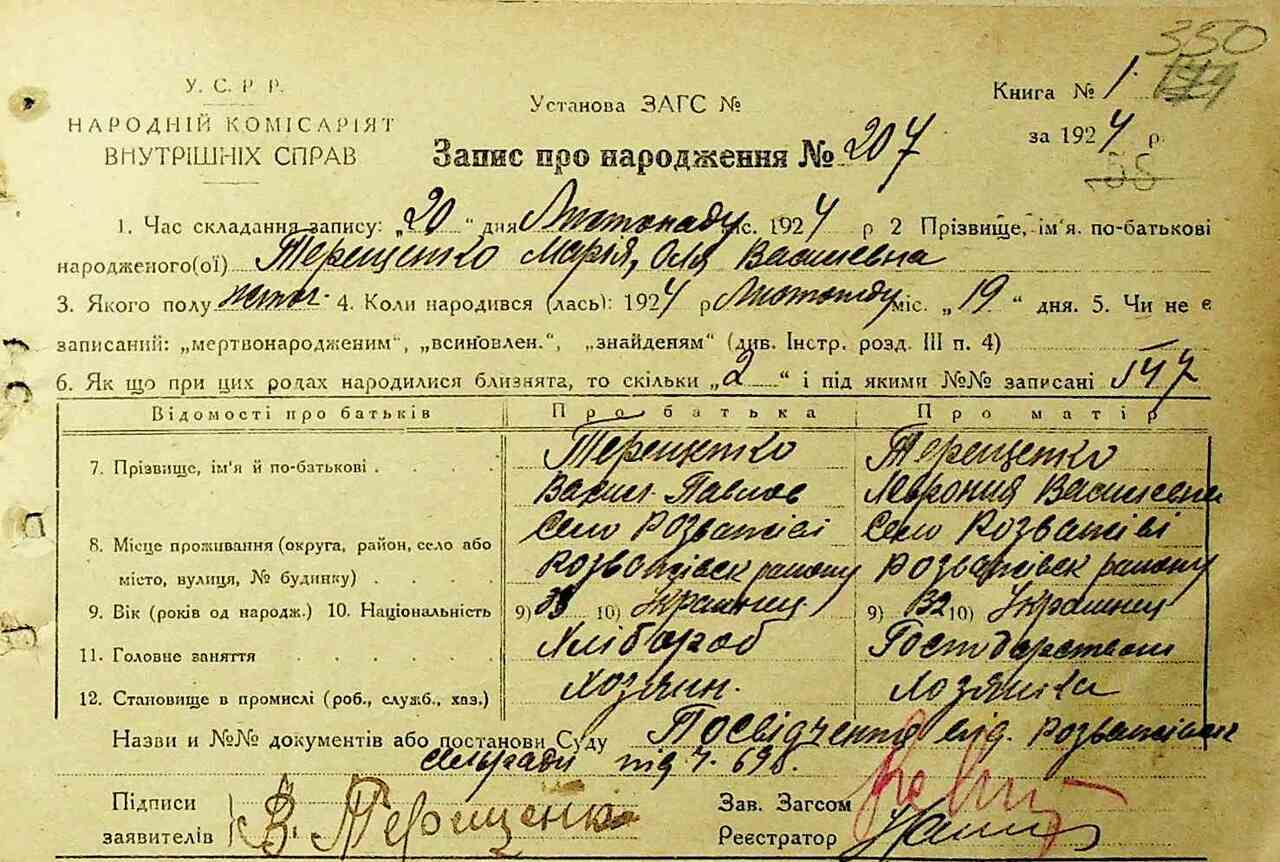 350
У. С. Р. Р.
НАРОДНІЙ КОМІСАРІЯТ
ВНУТРІШНІХ СПРАВ
Установа ЗАГС №
Книга № 1
за 1924 р.
Запис про народження № 207
1. Час складання запису: „20“ дня Листопаду міс. 1924 р 2 Прізвище, ім'я. по-батькові
народженого(ої) Терещенко Марія, Оля Василевна
3. Якого полу жіноч. 4. Коли народився (лась): 1924 р Листопаду міс. „19“ дня. 5. Чи не є
записаний: „мертвонародженим“, „всиновлен.“, „знайденям“ (див. Інстр. розд. III п. 4)
6. Як що при цих родах народилися близнята, то скільки „2“ і під якими №№ записані
Відомості про батьків Про батька Про матір
7. Прізвище, ім'я й по-батькові Терещенко Терещенко
Васил. Павлов Василевна
8. Місце проживання (округа, район, село або Село Розважів Село Розважів
місто, вулиця, № будинку) Розважівск району Розважівск району
9. Вік (років од народж.) 10. Національність 9) 10) Українец 9) 32 10) Українец
11. Головне заняття Хлібороб Господарством
12. Становище в промислі (роб., служб., хаз.) Хозяин. Хозяйка
Назви и №№ документів або постанови Суду Посвідчення від. Розважівск
сельради під ч. 698.
Підписи
заявителів В. Терещенко
Зав. Загсом
Реєстратор